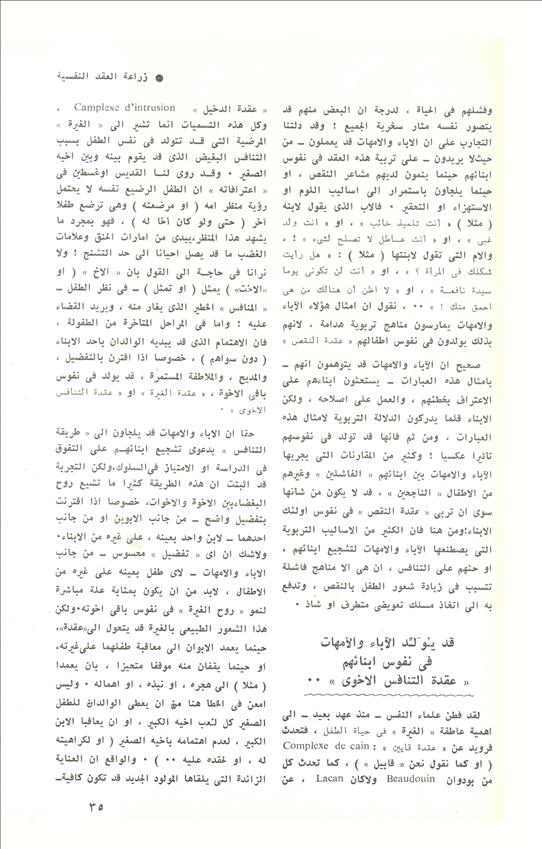 ● زراعة العقد النفسية
وفشلهم فى الحياة ، لدرجة ان البعض منهم قد
يتصور نفسه مثار سخرية الجميع ! وقد دلتنا
التجارب على ان الاباء والامهات قد يعملون ــ من
حيث لا يريدون ــ على تربية هذه العقد فى نفوس
ابنائهم حينما ينمون لديهم مشاعر النقص ، او
حينما يلجاون باستمرار الى اساليب اللوم او
الاستهزاء او التحقير · فالاب الذى يقول لابنه
( مثلا ) « أنت تلميذ خائب » ، او « انت ولد
غبى » ، او « أنت عـاطل لا تصلح لشىء » ! ،
والام التى تقول لابنتها ( مثلا ) : « هل رأيت
شكلك فى المرآة ؟ » ، او « أنت لن تكونى يوما
سيدة نافعـة » ، او « لا اظن أن هنالك من هى
احمق منك ! » ·· ، نقول ان امثال هؤلاء الآباء
والامهات يمارسون مناهج تربوية هدامة ، لانهم
بذلك يولدون فى نفوس اطفالهم « عقدة النقص »
صحيح ان الآباء والامهات قد يتوهمون انهم ــ
بامثال هذه العبارات ــ يستحثون ابناءهم على
الاعتراف بخطئهم ، والعمل على اصلاحه ، ولكن
الابناء قلما يدركون الدلالة التربوية لامثال هذه
العبارات ، ومن ثم فانها قد تولد فى نفوسهم
تاثيرا عكسيا ! وكثير من المقارنات التى يجريها
الآباء والامهات بين ابنائهم « الفاشلين » وغيرهم
من الاطفال « الناجحين » ، قد لا يكون من شانها
سوى ان تربى « عقدة النقص » فى نفوس اولئك
الابناء!ومن هنا فان الكثير من الاساليب التربوية
التى يصطنعها الآباء والامهات لتشجيع ابنائهم ،
او حثهم على التنافس ، ان هى الا مناهج فاشلة
تتسبب فى زيادة شعور الطفل بالنقص ، وتدفع
به الى اتخاذ مسلك تعويضى متطرف او شاذ ·
قد يـُـولـّـد الآباء والأمهات
فى نفوس ابنائهم
« عقدة التنافس الاخوى » ··
لقد فطن علماء النفس ــ منذ عهد بعيد ــ الى
اهمية عاطفة « الغيرة » فى حياة الطفل ، فتحدث
فرويد عن « عقدة قايين » : Complexe de cain
( او كما نقول نحن « قابيل » ) ، كما تحدث كل
من بودوان Beaudouin ولاكان Lacan ، عن
« عقدة الدخيل » Camplexe d'intrusion ،
وكل هذه التسميات انما تشير الى « الغيرة »
المرضية التى قـد تتولد فى نفس الطفل بسبب
التنافس البغيض الذى قد يقوم بينه وبين اخيه
الصغير · وقـد روى لنـا القديس اوغسطين فى
« اعترافاته » ان الطفل الرضيع نفسه لا يحتمل
رؤية منظر امه ( او مرضعته ) وهى ترضع طفلا
آخر ( حتى ولو كان أخا له ) ، فهو بمجرد ما
يشهد هذا المنظر،يبدى من امارات الحنق وعلامات
الغضب ما قد يصل احيانا الى حد التشنج ! ولا
نرانا فى حاجـة الى القول بان «الاخ» ( او
«الاخت») يمثل ( او تمثل ) ــ فى نظر الطفل ــ
«المنافس» الخطير الذى يغار منه ، ويريد القضاء
عليه ! واما فى المراحل المتاخرة من الطفولة ،
فان الاهتمام الذى قد يبديه الوالدان باحد الابناء
( دون سواهم ) ، خصوصا اذا اقترن بالتفضيل ،
والمديح ، والملاطفة المستمرة ، قد يولد فى نفوس
باقى الاخوة ، « عقدة الغيرة » او « عقدة التنافس
الاخوى » ·
حقا ان الاباء والامهات قد يلجاون الى « طريقة
التنافس » بدعوى تشجيع ابنائهـم على التفوق
فى الدراسة او الامتياز فى السلوك،ولكن التجربة
قد اثبتت ان هذه الطريقة كثيرا ما تشيع روح
البغضاءبين الاخوة والاخوات، خصوصا اذا اقترنت
بتفضيل واضح ــ من جانب الابوين او من جانب
احدهما ــ لابن واحد بعينه ، على غيره من الابناء·
ولاشك ان اى « تفضيل » محسوس ــ من جانب
الاباء والامهات ــ لاى طفل بعينه على غيره من
الاطفال ، لابد من ان يكون بمثابة علة مباشرة
لنمو « روح الغيرة » فى نفوس باقى اخوته·ولكن
هذا الشعور الطبيعى بالغيرة قد يتحول الى«عقدة»،
حينما يعمد الابوان الى معاقبة طفلهما على غيرته،
او حينما يقفان منه موقفا متحيزا ، بان يعمدا
( مثلا ) الى هجره ، او نبذه ، او اهماله · وليس
امعن فى الخطا هنا من ان يعطى الوالدان للطفل
الصغير كل لـُعب اخيه الكبير ، او ان يعاقبا الابن
الكبير ، لعدم اهتمامه باخيه الصغير ( او لكراهيته
له ، او لحقده عليه ·· ) · والواقع ان العناية
الزائدة التى يلقاها المولود الجديد قد تكون كافيةــ
٣٥